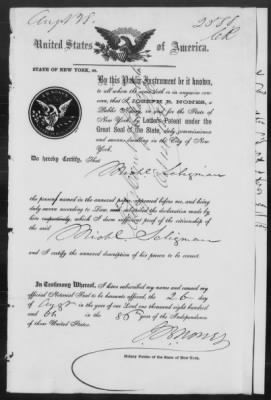 Augt 28.
United States of America.
STATE OF NEW YORK, ss.
By this Public Instrument be it known,
to all whom the same doth or in anywise concern,
that I, JOSEPH B. NONES, a
Public Notary in and for the State of
New York, by Letters Patent under the
Great Seal of the State, duly commissioned
and sworn, dwelling in the City of New
York,
Do hereby Certify, That
Michl Seligman
the person named in the annexed paper, appeared before me, and being
duly sworn according to Law, and subscribed the declaration made by
him respectively, which I deem sufficient proof of the citizenship of
the said
Michl Seligman
and I certify the annexed description of his person to be correct.
In Testimony Whereof, I have subscribed my name and caused my
official Notarial Seal to be hereunto affixed, the 26 day
of Augst in the year of our Lord one thousand eight hundred
and 61 in the 86th year of the Independence
of these United States.
J B Nones
Notary Public of the State of New York.